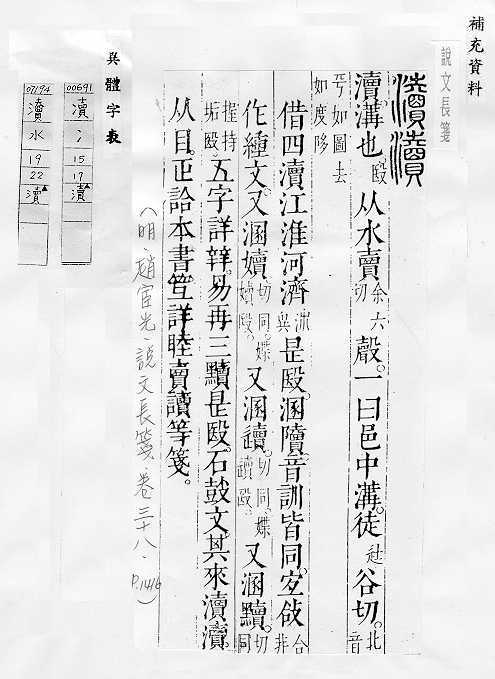 補充資料
說文長箋
瀆瀆
瀆。溝也。殹 从水賣 余六切 聲。一曰邑中溝。徒谷切。北音
乎如圖去
如度㢋
借四瀆江淮河濟
是殹。溷隫。音訓皆同。
作緟文。又溷嬻 切同。媟嬻殹。 又溷讀。切同。媟 又溷黷。切同
握持垢殹。 五字詳辡。易再三黷是殹。石鼓文。其來瀆瀆。
从目。正詥本書。笡詳睦賣讀等箋。
(明.趙宦光.說文長箋.卷三十八.P.1416)
異體字表
00691
瀆
氵
15
17
瀆
07194
瀆
水
19
22
瀆